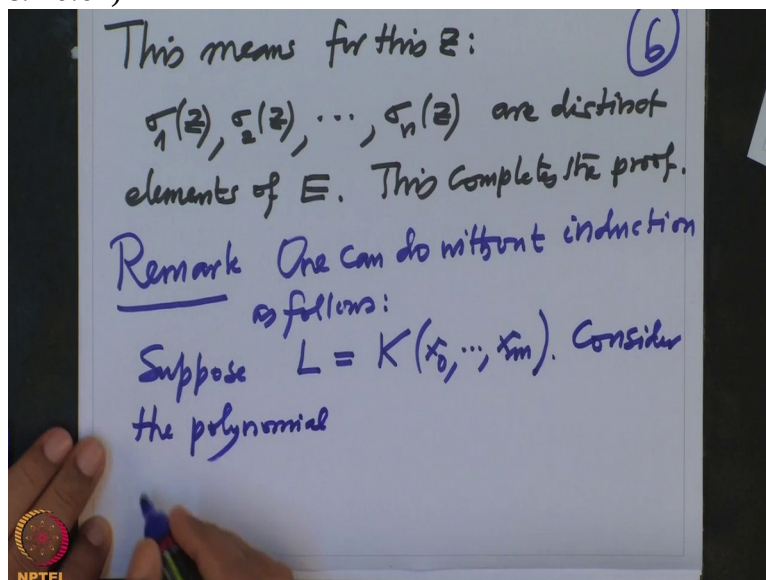 This means for this z: 6
σ₁(z), σ₂(z), ⋯, σₙ(z) are distinct
elements of E. This completes the proof.
Remark One can do without induction
as follows:
Suppose L = K(x₀, ⋯, xₘ). Consider
the polynomial
NPTEL